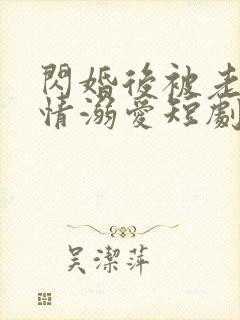 閃婚後被老
情溺愛短劇
吳潔萍